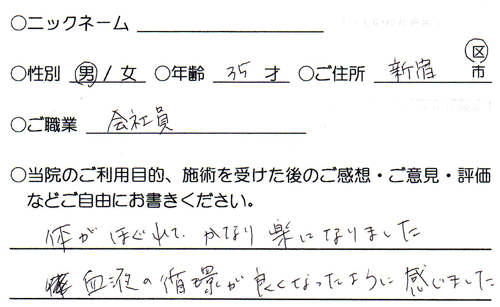 ○ニックネーム
○性別 男 / 女 ○年齢 35 才 ○ご住所 新宿 区 市
○ご職業 会社員
○当院のご利用目的、施術を受けた後のご感想・ご意見・評価
などご自由にお書きください。
体がほぐれて かなり楽になりました
血液の循環が良くなったように感じました